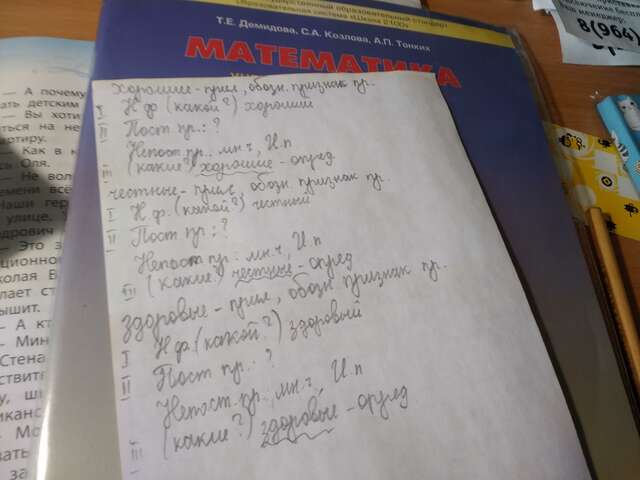 государственный образовательный стандарт
Образовательная система «Школа 2100»
Т.Е. Демидова, С.А. Козлова, А.П. Тонких
МАТЕМАТИКА
8(964)
Хорошие - прил, обозн. признак пр.
I Н.ф (какой?) хороший
II Пост пр.: ?
Непост пр.: мн.ч, И.п
III (какие?) хорошие - опред
честные - прил, обозн. признак пр.
I Н.ф. (какой?) честный
II Пост пр.: ?
Непост пр: мн.ч, И.п
III (какие?) честные - опред
здоровые - прил, обозн. признак пр.
I Н.ф. (какой?) здоровый
II Пост пр.: ?
Непост. пр.: мн.ч., И.п
III (какие?) здоровые - опред
— А почему
ать детским
— Вы хоти
ться на не
вартиру.
— Как в к
сь Оля.
— Не вол
ремени все
Наши гер
улице,
дрович
— Это з
ционног
колая В
лает ст
ышит.
— А кт
— Мин
Стена
ствите
у, ш
иканс
— Мо
вать
за